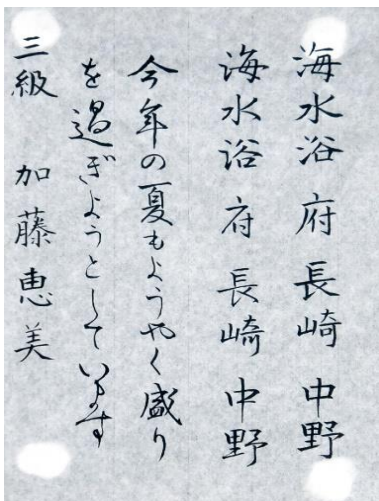 海水浴 府 長崎 中野
海水浴 府 長崎 中野
今年の夏もようやく盛り
を過ぎようとしています
三級 加藤恵美